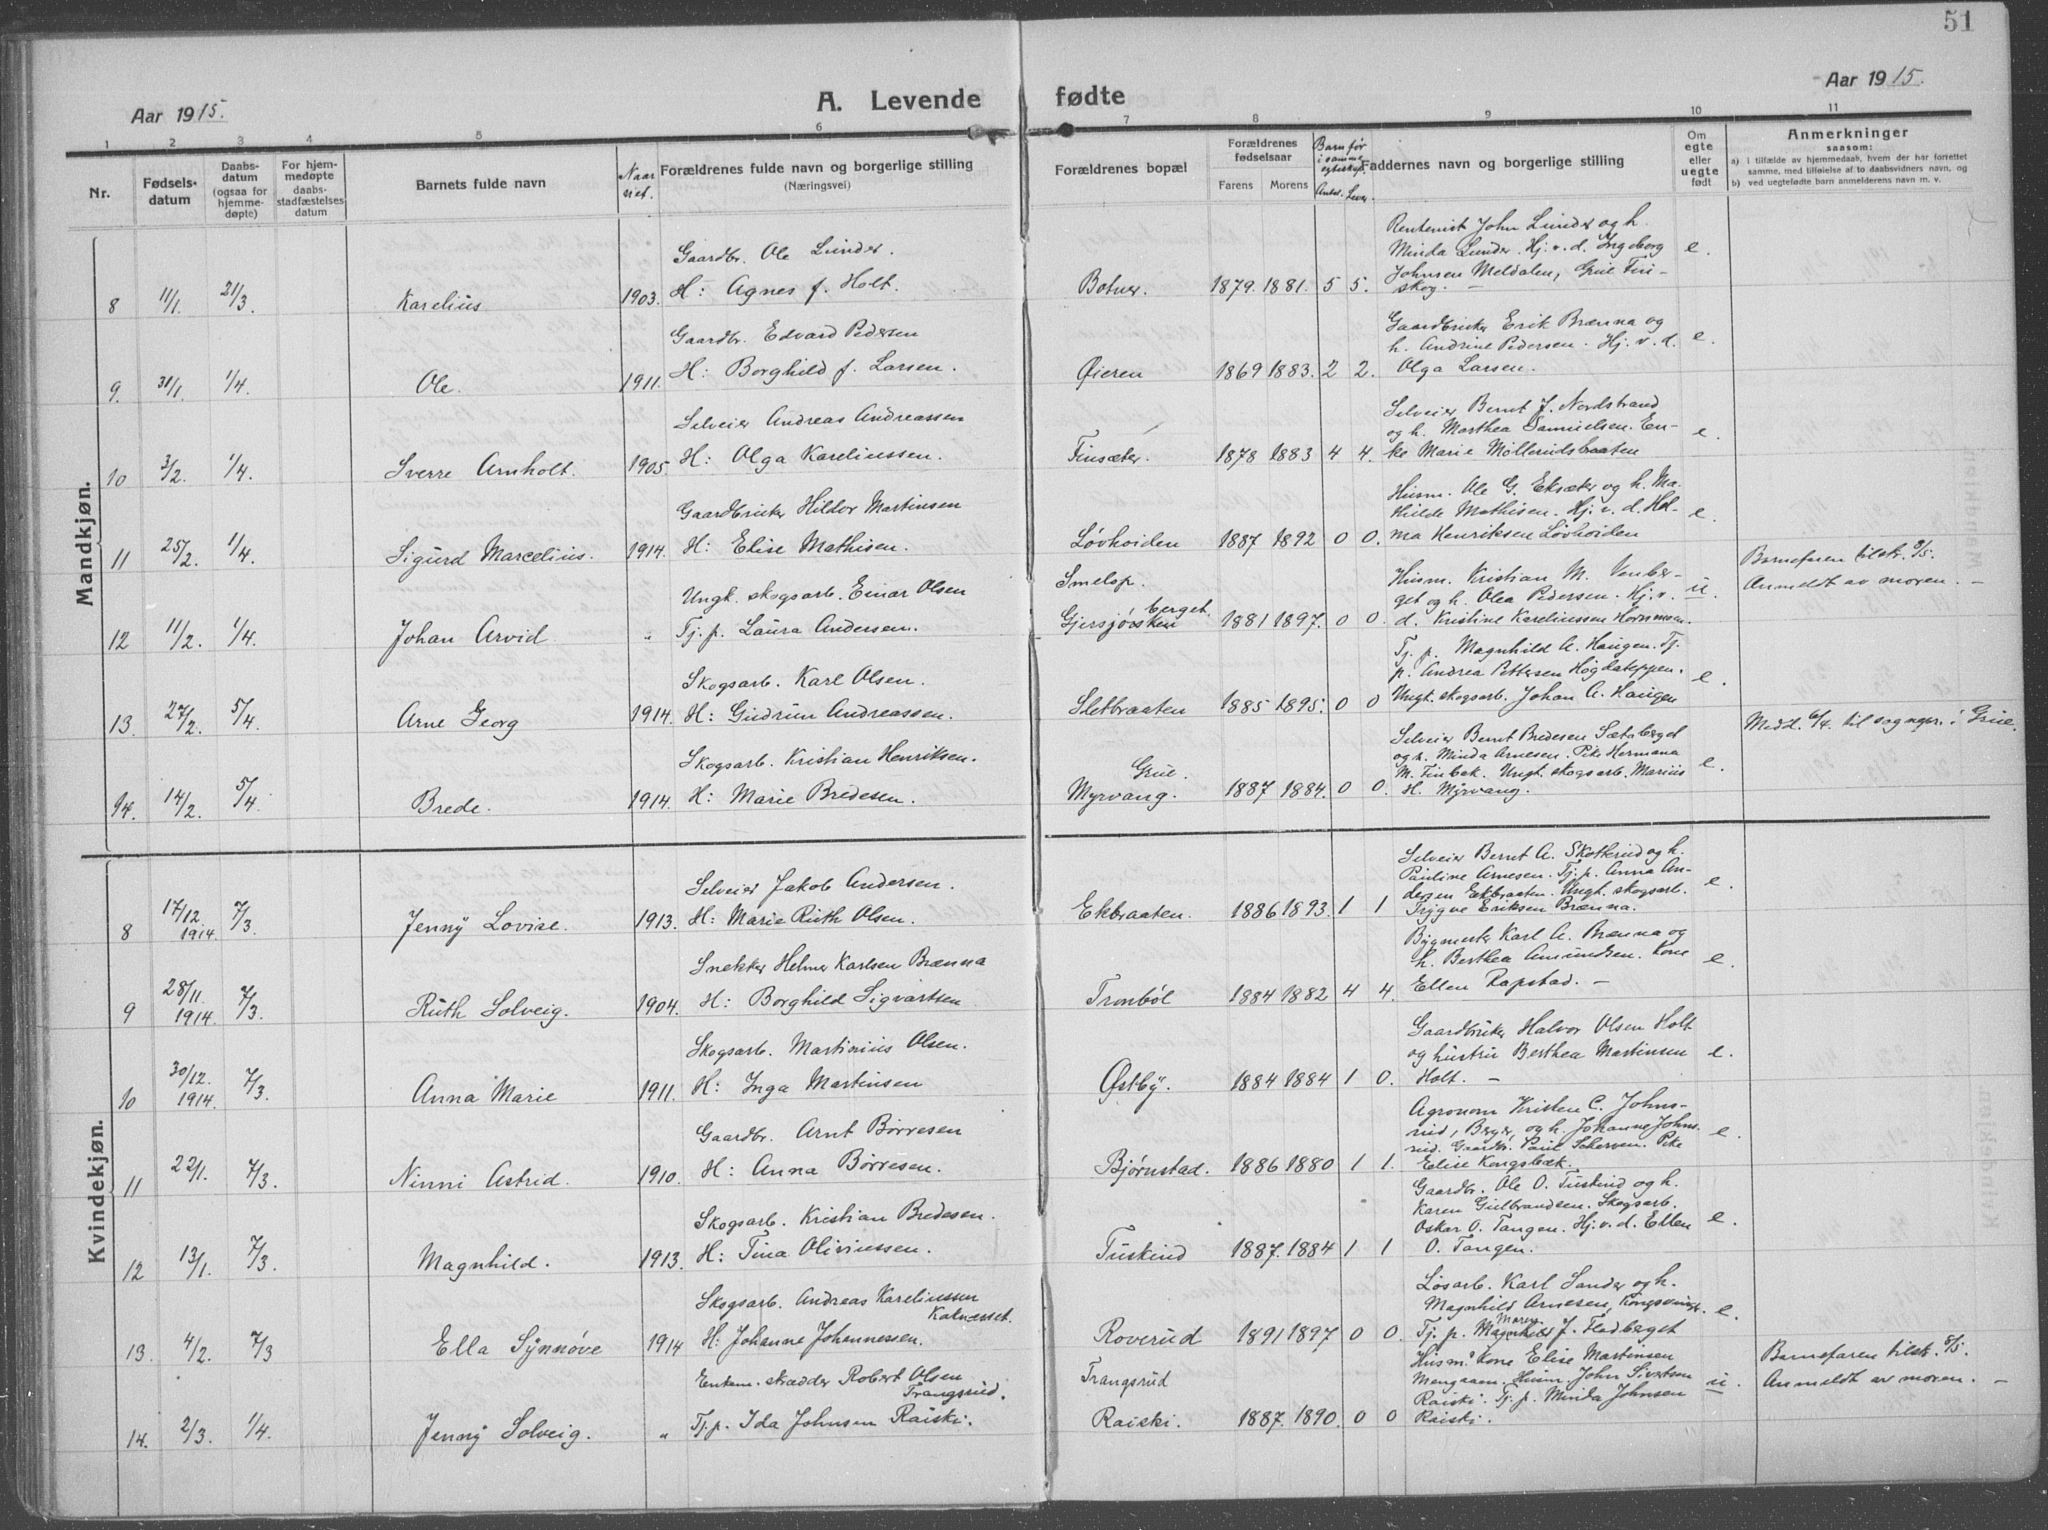 51
Aar 1915.
A. Levende fødte
Aar 1915.
1 2 3 4 5 6 7 8 9 10 11
Nr.
Fødsels-
datum
Daabs-
datum
(ogsaa for
hjemme-
døpte)
For hjem-
medøpte
daabs-
stadfæstelses
datum
Barnets fulde navn
Naar
viet.
Forældrenes fulde navn og borgerlige stilling
(Næringsvei)
Forældrenes bopæl
Forældrenes
fødselsaar
Farens Morens
Barn før
i samme
egteskap.
Antal. Lever.
Faddernes navn og borgerlige stilling
Om
egte
eller
uegte
født
Anmerkninger
saasom:
a) i tilfælde av hjemmedaab, hvem der har forrettet
samme, med tilføielse af to daabsvidners navn, og
b) ved uegtefødte barn anmelderens navn m. v.
Mandkjøn.
8 11/1. 21/3. Karelius 1903.
Gaardbr. Ole Lunder.
H: Agnes f. Holt.
Botner. 1879. 1881. 5 5.
Rentenist John Lunder og h.
Minda Lunder. Hj. v. d. Ingeborg
Johnsen Meldalen, Grue Fin-
skog. —
e.
9. 31/1. 1/4. Ole. 1911.
Gaardbr. Edvard Pedersen
H: Borghild f. Larsen.
Øieren 1869 1883. 2 2.
Gaardbruker Erik Brænna og
h. Andrine Pedersen. Hj. v. d.
Olga Larsen.
e.
10 3/2. 1/4. Sverre Arnholt. 1905.
Selveier Andreas Andreassen
H: Olga Kareliussen.
Finsæter. 1878 1883 4 4.
Selveier Bernt J. Nordstrand
og h. Marthea Samuelsen. En-
ke Marie Møllerudsbraaten
e.
11 25/2. 1/4. Sigurd Marcelius. 1914.
Gaardbruker Hildor Martinsen
H: Elise Mathisen.
Løvhoiden 1887 1892 0 0.
Husm. Ole G. Eksæter og h. Ma-
thilde Mathisen. Hj. v. d. Hel-
ma Henriksen Løvhoiden
e.
12 11/2. 1/4. Johan Arvid "
Ungk. skogsarb. Einar Olsen
Tj. p. Laura Andersen.
Smelop.
Gjersjøvsken berget. 1881 1897. 0 0.
Husm. Kristian M. Venber-
get og h. Olea Pedersen. Hj. v.
d. Kristine Kareliussen Hornmoen.
u.
Barnefaren tilst. 8/5.
Anmeldt av moren. —
13. 27/2. 5/4. Arne Georg 1914.
Skogsarb. Karl Olsen.
H: Gudrun Andreassen.
Sletbraaten 1885 1895. 0 0
Tj. p. Magnhild A. Haugen. Tj.
p. Andrea Pettersen Høgdateppen.
Ungk. skogsarb. Johan A. Haugen
e.
14. 14/2. 5/4. Brede. 1914.
Skogsarb. Kristian Henriksen.
H: Marie Bredesen.
Grue.
Myrvang. 1887 1884. 0 0.
Selveier Bernt Bredesen Sætaberget
og h. Minda Arnesen. Pike Hermana
M. Finbek. Ungk. skogsarb. Marius
H. Myrvang.
e.
Medd. 6/4. til sognepr. i Grue.
Kvindekjøn.
8 17/12. 1914. 7/3. Jenny Lovise. 1913.
Selveier Jakob Andersen.
H: Marie Ruth Olsen.
Ekbraaten. 1886 1893. 1 1
Selveier Bernt A. Skotterud og h.
Pauline Arnesen. Tj. p. Anna An-
dersen Ekbraaten. Ungk. skogsarb.
Trygve Eriksen Brænna.
e.
9 28/11. 1914. 7/3. Ruth Solveig. 1904.
Snekker Helmer Karlsen Brænna
H: Borghild Sigvartsen
Tronbøl 1884 1882 4 4.
Bygmester Karl A. Brænna og
h. Berthea Amundsen. Kone
Ellen Rapstad. —
e.
10 30/12. 1914. 7/3. Anna Marie 1911.
Skogsarb. Martinius Olsen.
H: Inga Martinsen
Østby. 1884 1884 1 0.
Gaardbruker Halvor Olsen Holt
og hustru Berthea Martinsen
Holt. —
e.
11 22/1. 7/3. Ninni Astrid. 1910.
Gaardbr. Arnt Børresen
H: Anna Børresen.
Bjørnstad. 1886 1880 1 1.
Agronom Kristen C. Johns-
rud, Berger, og h. Johanne Johns-
rud. Gaardbr. Paul Skerven. Pike
Elise Kongsbæk.
e.
12 13/1. 7/3. Magnhild. 1913.
Skogsarb. Kristian Bredesen.
H: Tina Oliviussen.
Tuskind 1887. 1884 1 1
Gaardbr. Ole O. Tuskind og h.
Karen Gulbrandsen. Skogsarb.
Oskar O. Tangen. Hj. v. d. Ellen
O. Tangen.
e.
13. 4/2. 7/3 Ella Synnøve 1914
Skogsarb. Andreas Kareliussen
Kalnesset.
H: Johanne Johannessen.
Roverud 1891 1897 0 0.
Løsarb. Karl Sander og h.
Magnhild Arnesen, Kongsvinger.
Tj. p. Maren J. Fladberget
e.
14. 2/3. 1/4. Jenny Solveig. "
Enkem. skrædder Robert Olsen
Trangsrud.
Tj. p. Ida Johnsen Raiski.
Trangsrud
Raiski. 1887. 1890. 0 0
Husm. kone Elise Martinsen
Mengaaen. Husm. John Sivertsen
Raiski. Tj. p. Minda Johnsen
Raiski.
u.
Barnefaren tilst. 8/5.
Anmeldt av moren. —